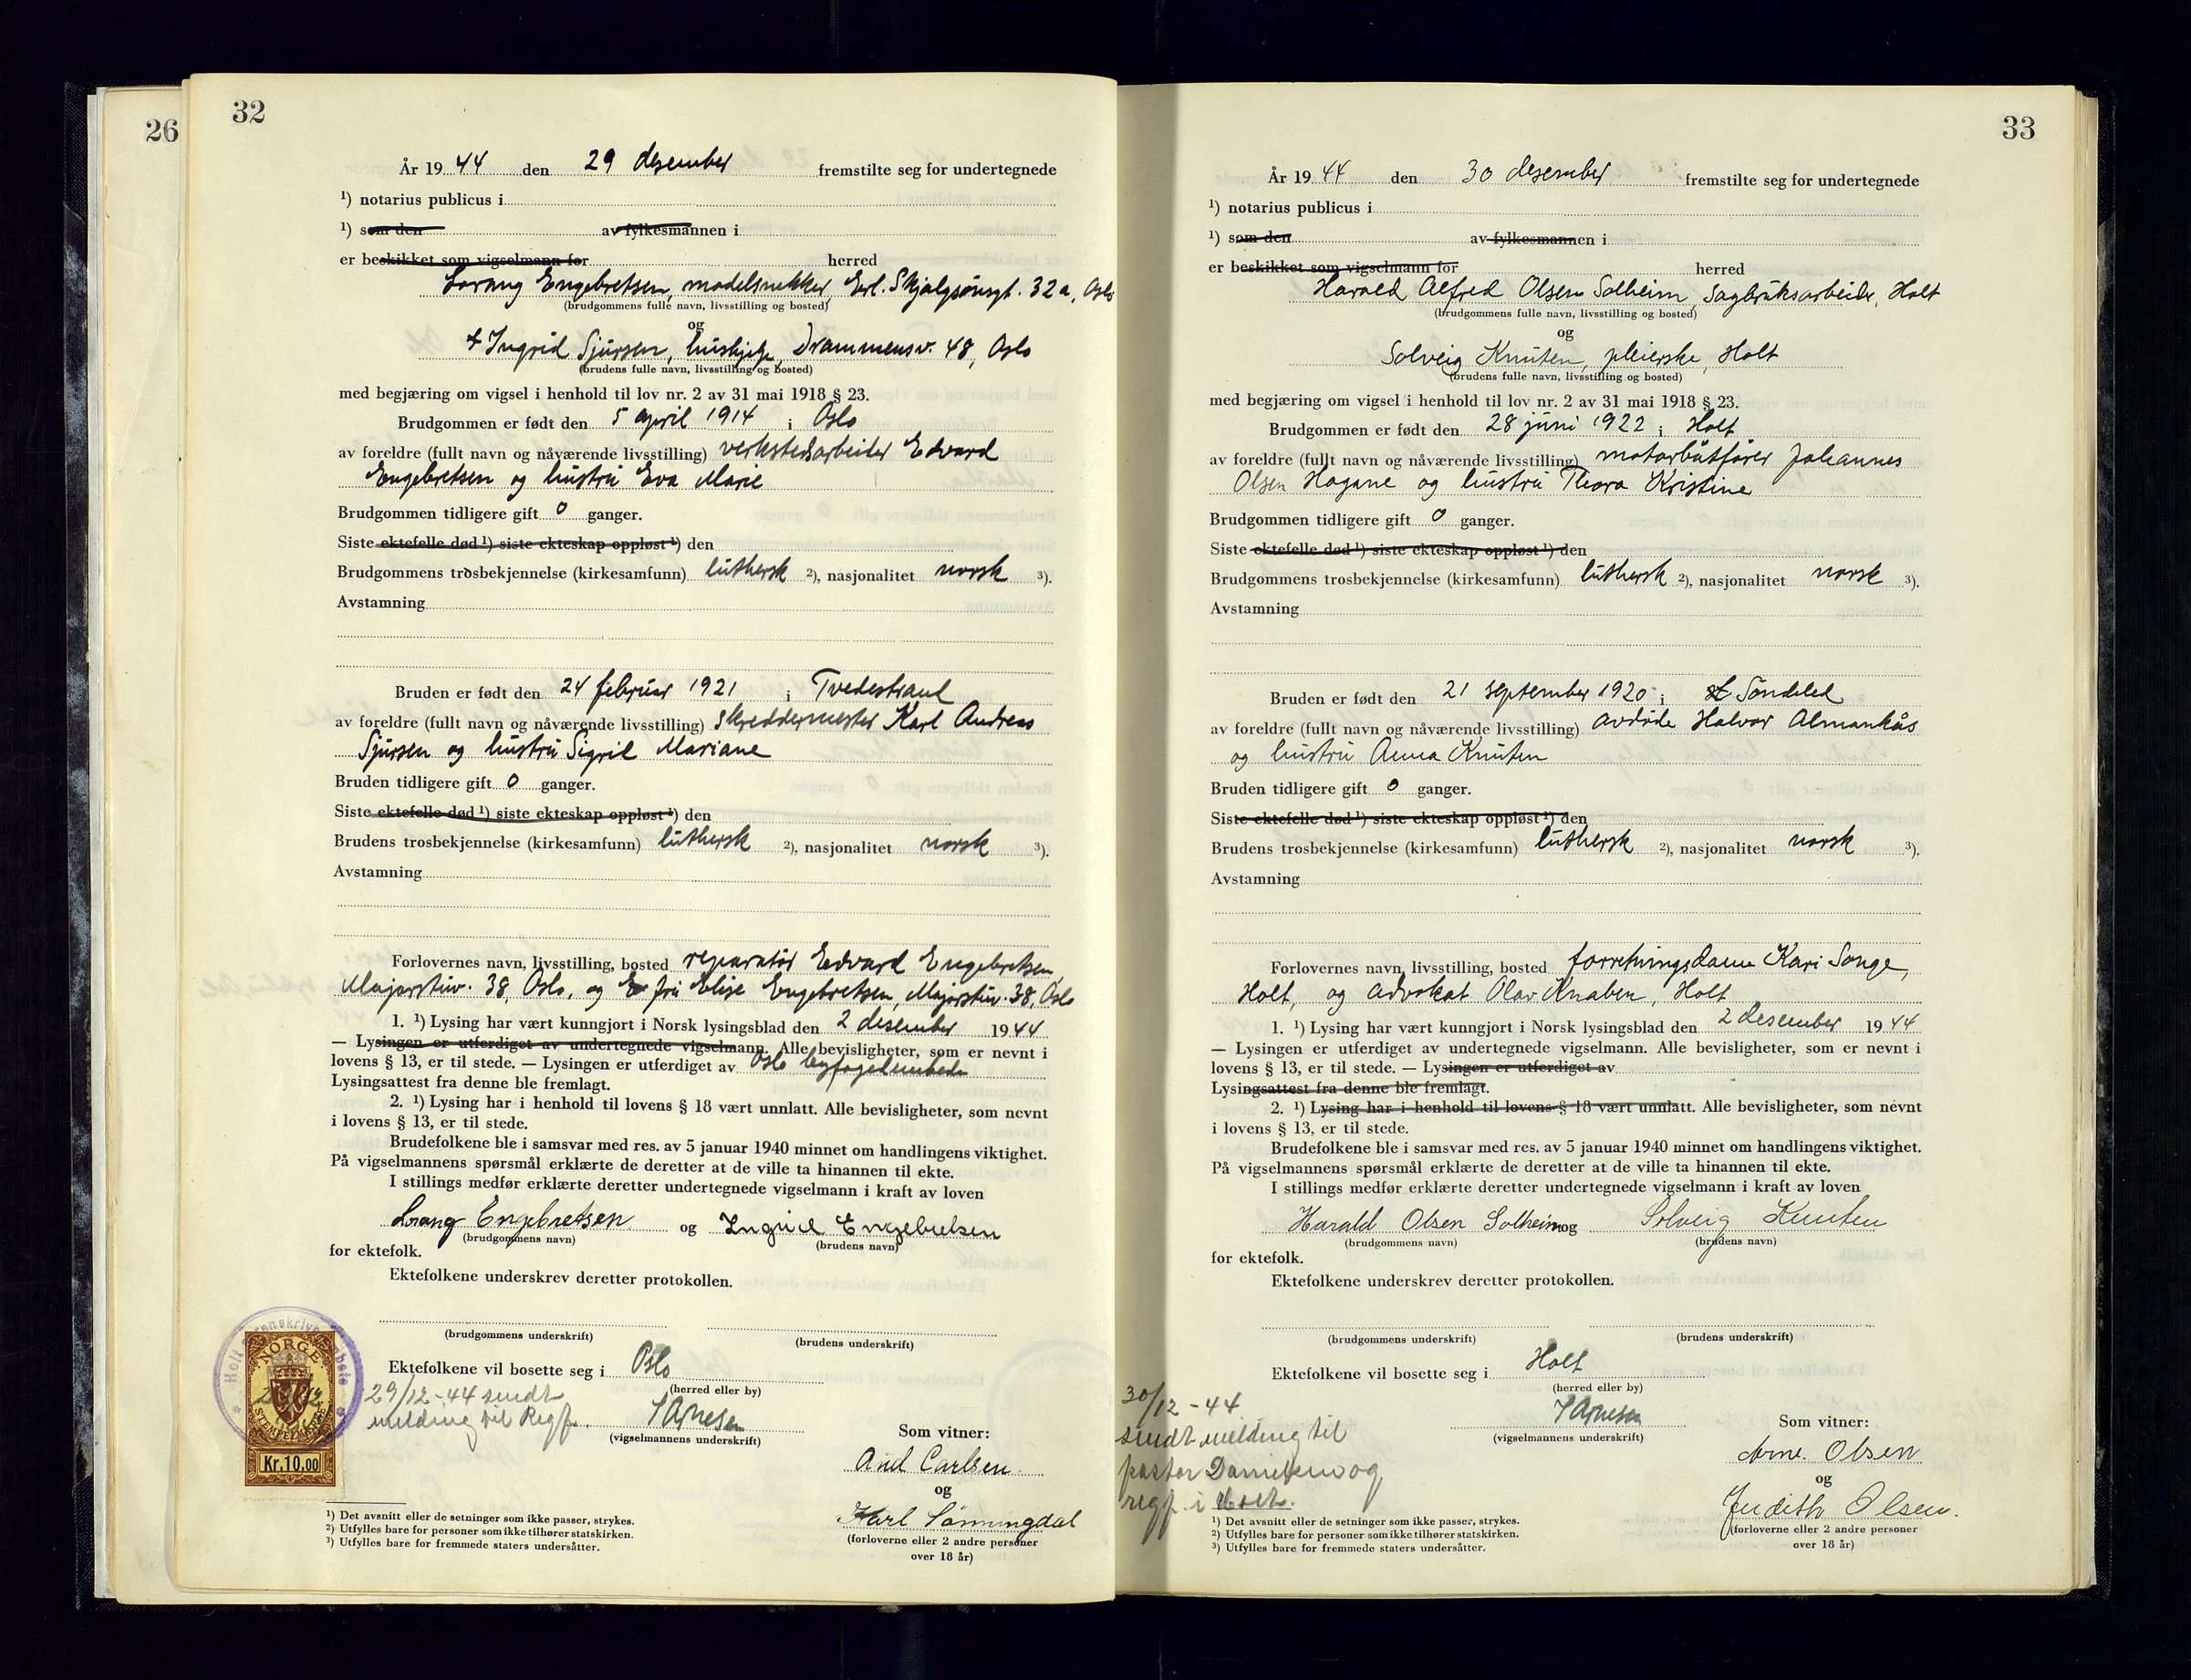 26
32
År 1944 den 29 desember fremstilte seg for undertegnede
¹) notarius publicus i
¹) som den av fylkesmannen i
er beskikket som vigselmann for herred
Lorang Engebretsen, modelsnekker, Erl. Skjalgsønsgt. 32a, Oslo
(brudgommens fulle navn, livsstilling og bosted)
og
Ingrid Sjursen, hushjelp, Drammensv. 48, Oslo
(brudens fulle navn, livsstilling og bosted)
med begjæring om vigsel i henhold til lov nr. 2 av 31 mai 1918 § 23.
Brudgommen er født den 5 april 1914 i Oslo
av foreldre (fullt navn og nåværende livsstilling) verkstedsarbeider Edvard
Engebretsen og hustru Eva Marie
Brudgommen tidligere gift 0 ganger.
Siste ektefelle død ¹) siste ekteskap oppløst ¹) den
Brudgommens trosbekjennelse (kirkesamfunn) luthersk ²), nasjonalitet norsk ³).
Avstamning
Bruden er født den 24 februar 1921 i Tvedestrand
av foreldre (fullt navn og nåværende livsstilling) skreddermester Karl Andreas
Sjursen og hustru Sigrid Mariane
Bruden tidligere gift 0 ganger.
Siste ektefelle død ¹) siste ekteskap oppløst ¹) den
Brudens trosbekjennelse (kirkesamfunn) luthersk ²), nasjonalitet norsk ³).
Avstamning
Forlovernes navn, livsstilling, bosted reparatør Edvard Engebretsen,
Majorstuv. 38, Oslo, og fru Elise Engebretsen, Majorstuv. 38, Oslo
1. ¹) Lysing har vært kunngjort i Norsk lysingsblad den 2 desember 1944
— Lysingen er utferdiget av undertegnede vigselmann. Alle bevisligheter, som er nevnt i
lovens § 13, er til stede. — Lysingen er utferdiget av Oslo byfogedembede
Lysingsattest fra denne ble fremlagt.
2. ¹) Lysing har i henhold til lovens § 18 vært unnlatt. Alle bevisligheter, som nevnt
i lovens § 13, er til stede.
Brudefolkene ble i samsvar med res. av 5 januar 1940 minnet om handlingens viktighet.
På vigselmannens spørsmål erklærte de deretter at de ville ta hinannen til ekte.
I stillings medfør erklærte deretter undertegnede vigselmann i kraft av loven
Lorang Engebretsen og Ingrid Engebretsen
(brudgommens navn) (brudens navn)
for ektefolk.
Ektefolkene underskrev deretter protokollen.
(brudgommens underskrift) (brudens underskrift)
Ektefolkene vil bosette seg i Oslo
(herred eller by)
29/12-44 sendt
melding til Regf.
(vigselmannens underskrift)
NORGE
STEMPELMERKE
Kr.10.00
Som vitner:
And Carlsen
og
Karl Sønningdal
(forloverne eller 2 andre personer
over 18 år)
¹) Det avsnitt eller de setninger som ikke passer, strykes.
²) Utfylles bare for personer som ikke tilhører statskirken.
³) Utfylles bare for fremmede staters undersåtter.
33
År 1944 den 30 desember fremstilte seg for undertegnede
¹) notarius publicus i
¹) som den av fylkesmannen i
er beskikket som vigselmann for herred
Harald Alfred Olsen Solheim, Sagbruksarbeider, Holt
(brudgommens fulle navn, livsstilling og bosted)
og
Solveig Knuten, pleierske, Holt
(brudens fulle navn, livsstilling og bosted)
med begjæring om vigsel i henhold til lov nr. 2 av 31 mai 1918 § 23.
Brudgommen er født den 28 juni 1922 i Holt
av foreldre (fullt navn og nåværende livsstilling) motorbåtfører Johannes
Olsen Hagane og hustru Theora Kristine
Brudgommen tidligere gift 0 ganger.
Siste ektefelle død ¹) siste ekteskap oppløst ¹) den
Brudgommens trosbekjennelse (kirkesamfunn) luthersk ²), nasjonalitet norsk ³).
Avstamning
Bruden er født den 21 september 1920 i Søndeled
av foreldre (fullt navn og nåværende livsstilling) avdøde Halvor Almankås
og hustru Anna Knuten
Bruden tidligere gift 0 ganger.
Siste ektefelle død ¹) siste ekteskap oppløst ¹) den
Brudens trosbekjennelse (kirkesamfunn) luthersk ²), nasjonalitet norsk ³).
Avstamning
Forlovernes navn, livsstilling, bosted forretningsdame Kari Songe,
Holt, og advokat Olav Knaben, Holt
1. ¹) Lysing har vært kunngjort i Norsk lysingsblad den 2 desember 1944
— Lysingen er utferdiget av undertegnede vigselmann. Alle bevisligheter, som er nevnt i
lovens § 13, er til stede. — Lysingen er utferdiget av
Lysingsattest fra denne ble fremlagt.
2. ¹) Lysing har i henhold til lovens § 18 vært unnlatt. Alle bevisligheter, som nevnt
i lovens § 13, er til stede.
Brudefolkene ble i samsvar med res. av 5 januar 1940 minnet om handlingens viktighet.
På vigselmannens spørsmål erklærte de deretter at de ville ta hinannen til ekte.
I stillings medfør erklærte deretter undertegnede vigselmann i kraft av loven
Harald Olsen Solheim og Solveig Knuten
(brudgommens navn) (brudens navn)
for ektefolk.
Ektefolkene underskrev deretter protokollen.
(brudgommens underskrift) (brudens underskrift)
Ektefolkene vil bosette seg i Holt
(herred eller by)
30/12-44
sendt melding til
pastor Danielsen og
regf. i Holt.
(vigselmannens underskrift)
Som vitner:
Arne Olsen
og
Judith Olsen.
(forloverne eller 2 andre personer
over 18 år)
¹) Det avsnitt eller de setninger som ikke passer, strykes.
²) Utfylles bare for personer som ikke tilhører statskirken.
³) Utfylles bare for fremmede staters undersåtter.